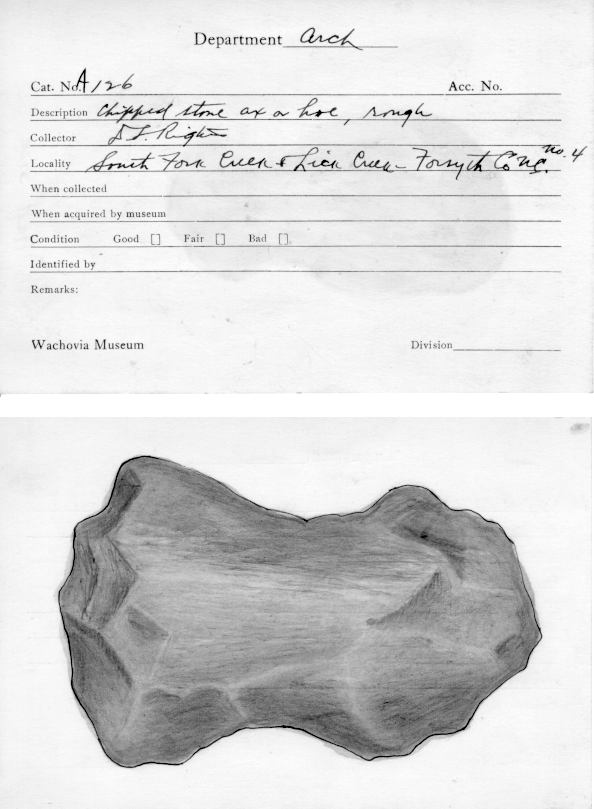 Department Arch
Cat. No. A126 Acc. No.
Description Chipped stone ax or hoe, rough
Collector D L. Rights
Locality South Fork Creek & Lick Creek - Forsyth Co NC. no. 4
When collected
When acquired by museum
Condition Good [] Fair [] Bad [].
Identified by
Remarks:
Wachovia Museum Division